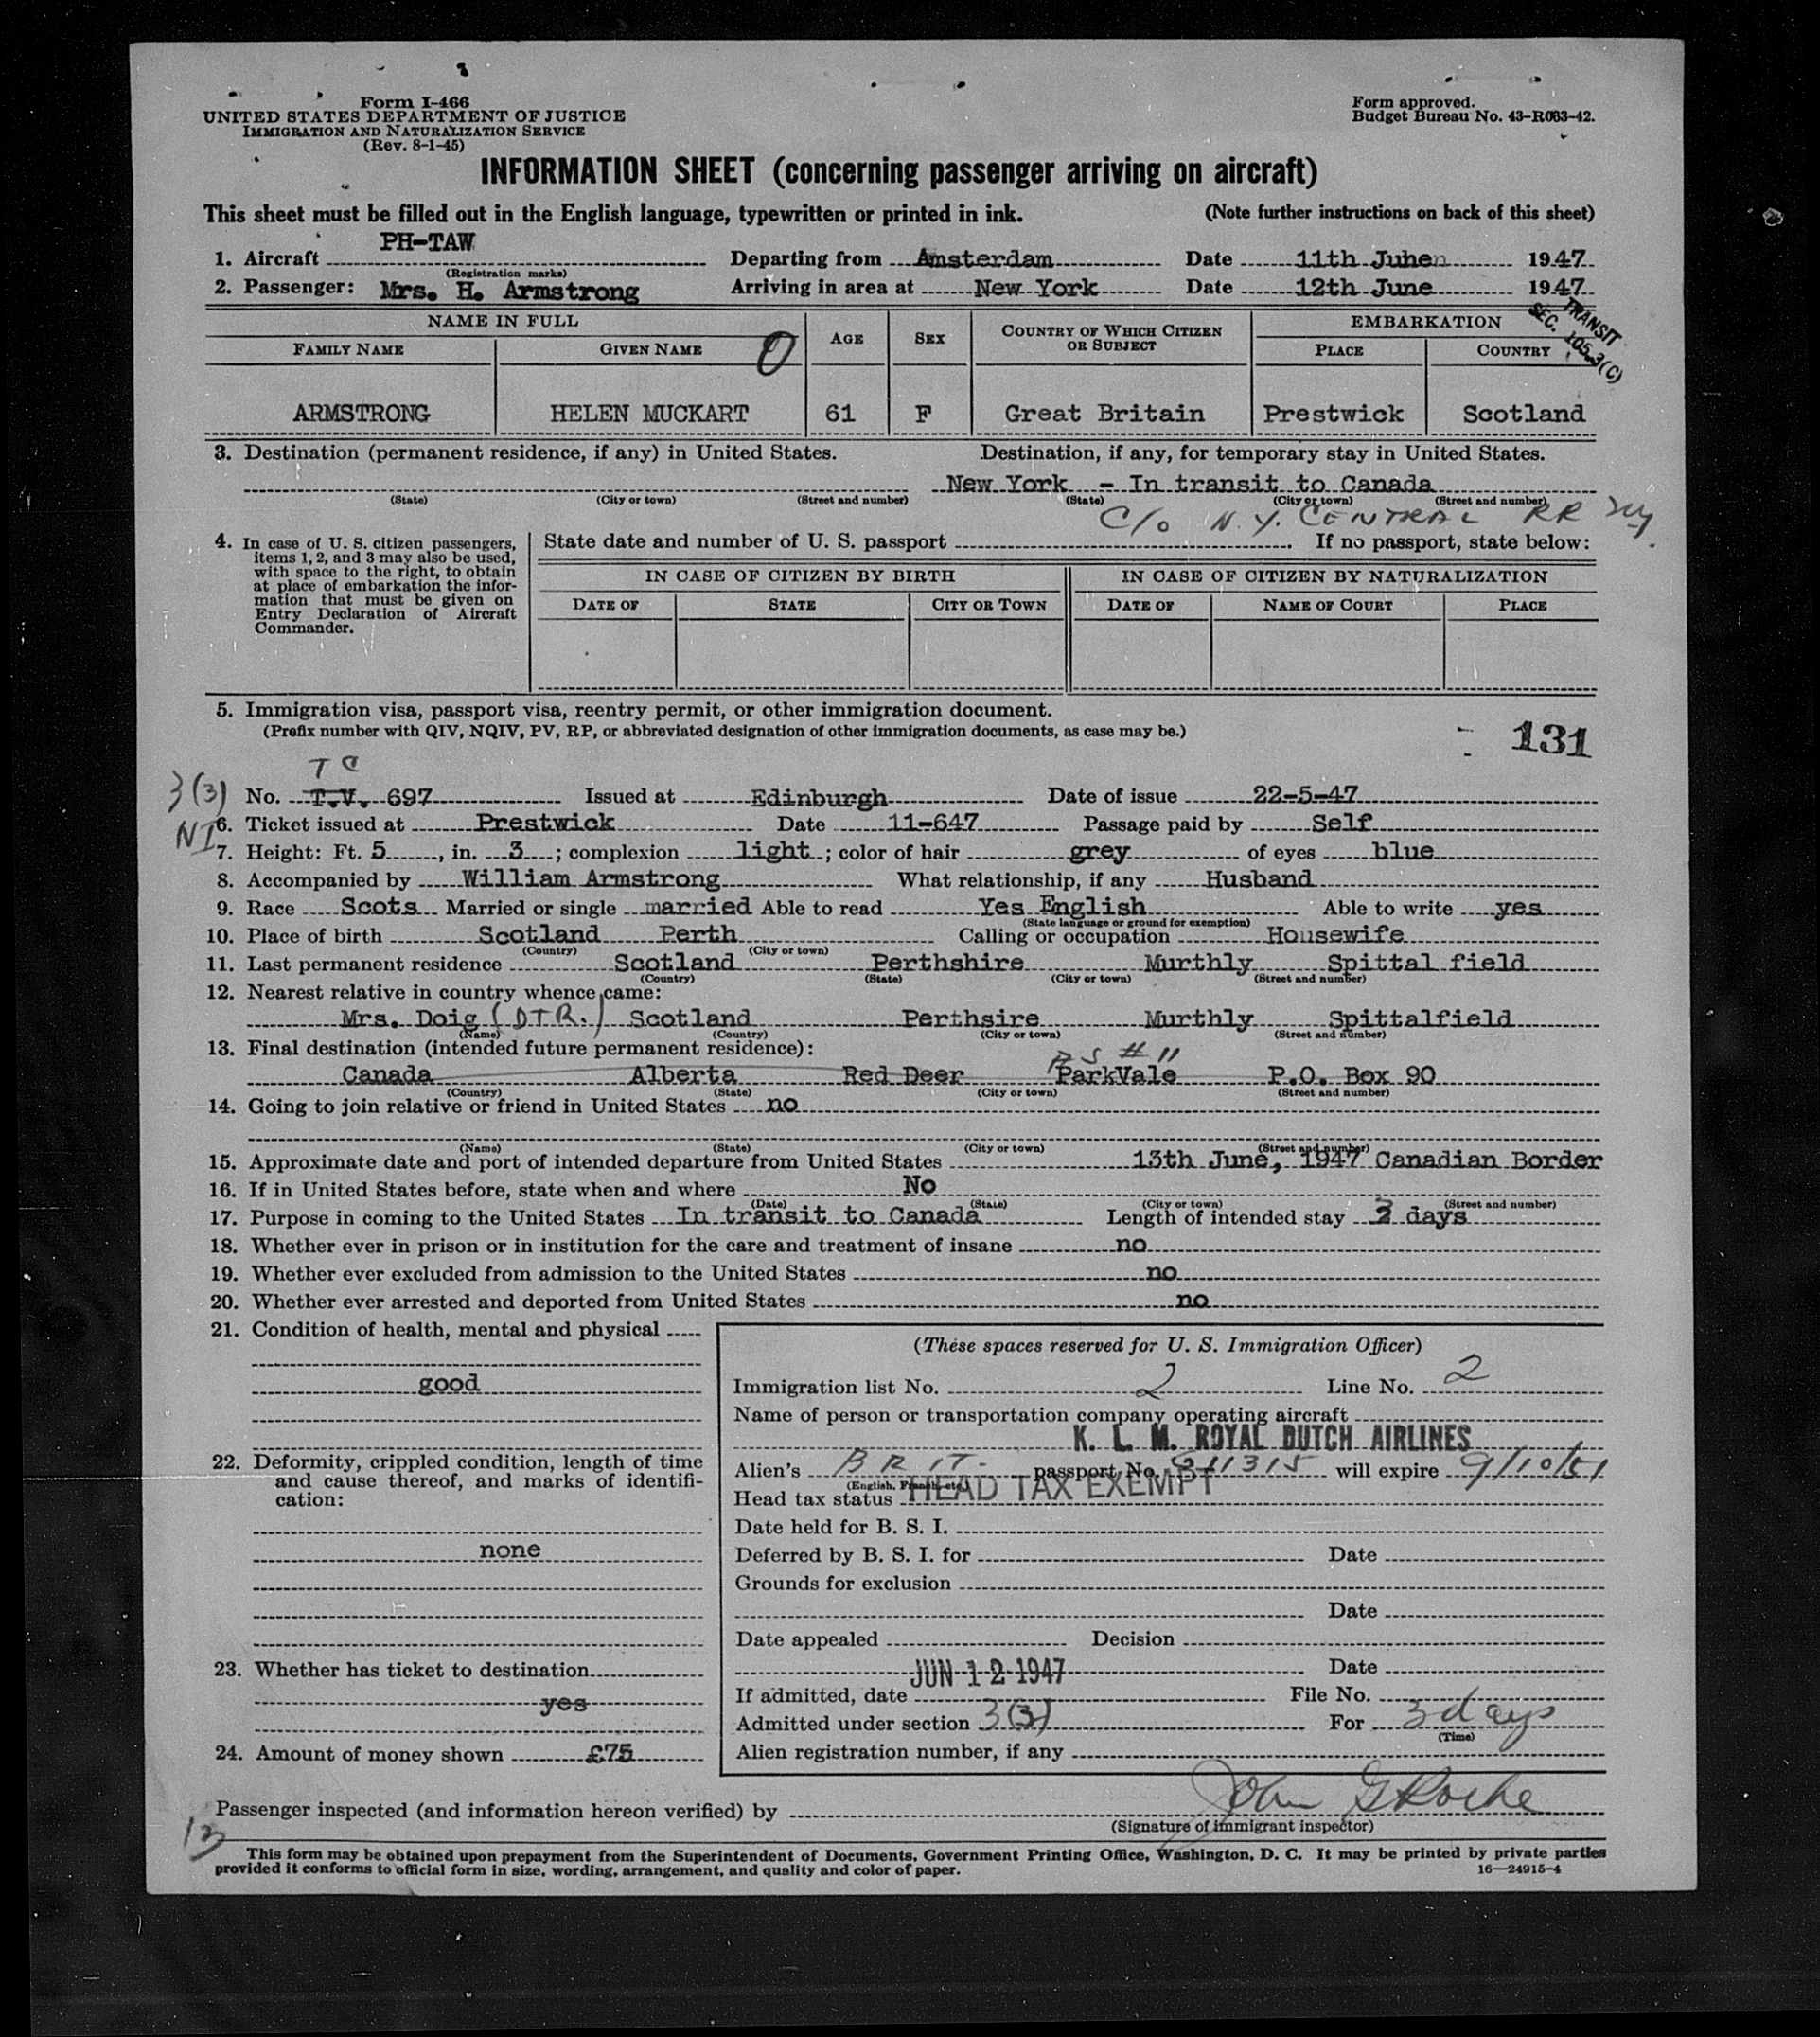 Form I-466
UNITED STATES DEPARTMENT OF JUSTICE
IMMIGRATION AND NATURALIZATION SERVICE
(Rev. 8-1-45)
Form approved.
Budget Bureau No. 43-R063-42.
INFORMATION SHEET (concerning passenger arriving on aircraft)
This sheet must be filled out in the English language, typewritten or printed in ink. (Note further instructions on back of this sheet)
1. Aircraft PH-TAW Departing from Amsterdam Date 11th Juhen 1947
(Registration marks)
2. Passenger: Mrs. H. Armstrong Arriving in area at New York Date 12th June 1947
TRANSIT
SEC. 105.3(C)
NAME IN FULL EMBARKATION
FAMILY NAME GIVEN NAME 0 AGE SEX COUNTRY OF WHICH CITIZEN OR SUBJECT PLACE COUNTRY
ARMSTRONG HELEN MUCKART 61 F Great Britain Prestwick Scotland
3. Destination (permanent residence, if any) in United States. Destination, if any, for temporary stay in United States.
New York - In transit to Canada
(State) (City or town) (Street and number) (State) (City or town) (Street and number)
C/o N.Y. CENTRAL RR
4. In case of U. S. citizen passengers, items 1, 2, and 3 may also be used, with space to the right, to obtain at place of embarkation the information that must be given on Entry Declaration of Aircraft Commander.
State date and number of U. S. passport If no passport, state below:
IN CASE OF CITIZEN BY BIRTH IN CASE OF CITIZEN BY NATURALIZATION
DATE OF STATE CITY OR TOWN DATE OF NAME OF COURT PLACE
5. Immigration visa, passport visa, reentry permit, or other immigration document.
(Prefix number with QIV, NQIV, PV, RP, or abbreviated designation of other immigration documents, as case may be.)
131
TC
3(3) No. T.V. 697 Issued at Edinburgh Date of issue 22-5-47
NI
6. Ticket issued at Prestwick Date 11-647 Passage paid by Self
7. Height: Ft. 5, in. 3; complexion light; color of hair grey of eyes blue
8. Accompanied by William Armstrong What relationship, if any Husband
9. Race Scots Married or single married Able to read Yes English Able to write yes
(State language or ground for exemption)
10. Place of birth Scotland Perth Calling or occupation Housewife
(Country) (City or town)
11. Last permanent residence Scotland Perthshire Murthly Spittal field
(Country) (State) (City or town) (Street and number)
12. Nearest relative in country whence came:
Mrs. Doig (DTR.) Scotland Perthsire Murthly Spittalfield
(Name) (Country) (City or town) (Street and number)
13. Final destination (intended future permanent residence):
# 11
Canada Alberta Red Deer ParkVale P.O. Box 90
(Country) (State) (City or town) (Street and number)
14. Going to join relative or friend in United States no
(Name) (State) (City or town) (Street and number)
15. Approximate date and port of intended departure from United States 13th June, 1947 Canadian Border
16. If in United States before, state when and where No
(Date) (State) (City or town) (Street and number)
17. Purpose in coming to the United States In transit to Canada Length of intended stay 3 days
18. Whether ever in prison or in institution for the care and treatment of insane no
19. Whether ever excluded from admission to the United States no
20. Whether ever arrested and deported from United States no
21. Condition of health, mental and physical
good
22. Deformity, crippled condition, length of time and cause thereof, and marks of identification:
none
23. Whether has ticket to destination
yes
24. Amount of money shown £75
(These spaces reserved for U. S. Immigration Officer)
Immigration list No. 2 Line No. 2
Name of person or transportation company operating aircraft
K. L. M. ROYAL DUTCH AIRLINES
Alien's BRIT. passport No. 311315 will expire 9/10/51
(English, French, etc.)
Head tax status HEAD TAX EXEMPT
Date held for B. S. I.
Deferred by B. S. I. for Date
Grounds for exclusion
Date
Date appealed Decision
Date
JUN 12 1947
If admitted, date File No.
Admitted under section 3(3) For 3 days
(Time)
Alien registration number, if any
Passenger inspected (and information hereon verified) by John G Roche
(Signature of immigrant inspector)
This form may be obtained upon prepayment from the Superintendent of Documents, Government Printing Office, Washington, D. C. It may be printed by private parties
provided it conforms to official form in size, wording, arrangement, and quality and color of paper. 16—24915-4